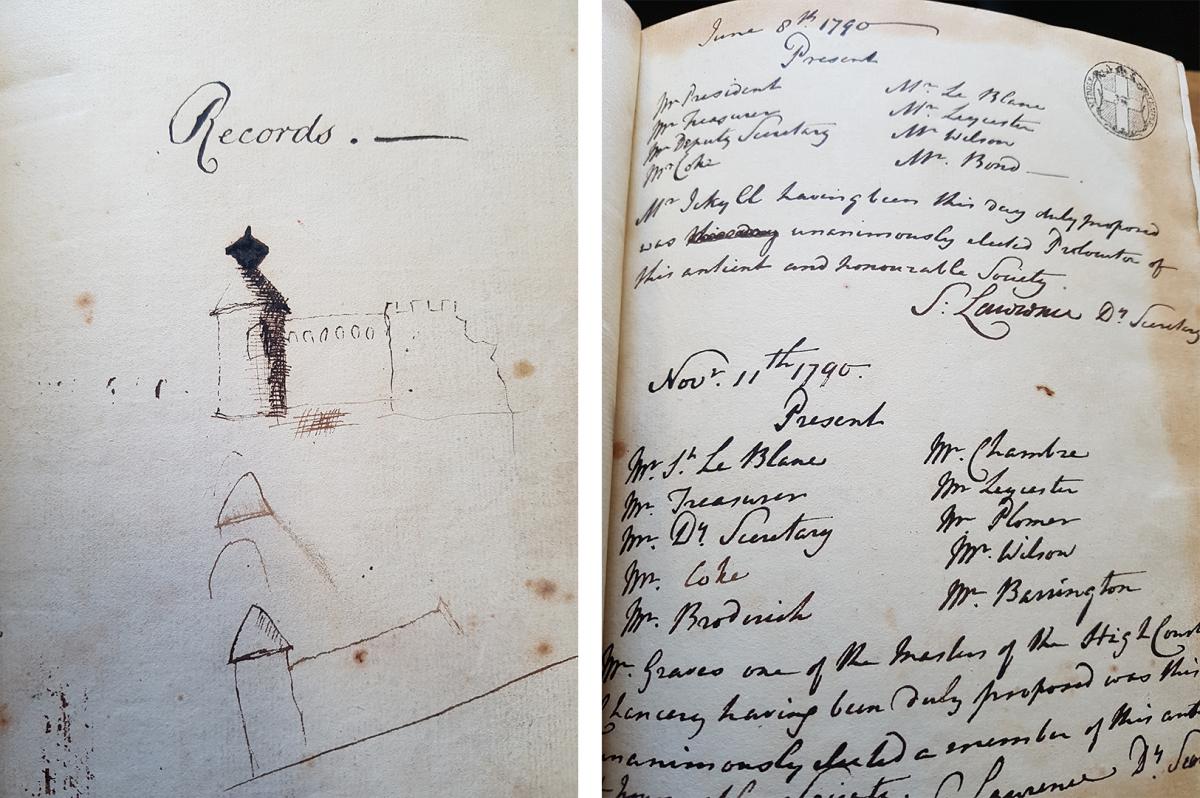 Records. —
June 8th. 1790
Present
Mr President
Mr Treasurer
Mr Deputy Secretary
Mr Coke
Mr. Le Blanc
Mr. Leycester
Mr Wilson
Mr. Bond —
Mr Jekyll having been this day duly proposed
was unanimously elected of
this antient and honourable Society.
S: Lawrence Dy Secretary
Novr. 11th 1790.
Present
Mr. Sjt. Le Blanc
Mr. Treasurer
Mr. Dy Secretary
Mr. Coke
Mr. Broderick
Mr. Chambre
Mr Leycester
Mr Plomer
Mr. Wilson
Mr. Barrington
Mr. Graves one of the Masters of the High Court
Chancery having been duly proposed was this
unanimously elected a member of this
S. Lawrence Dy